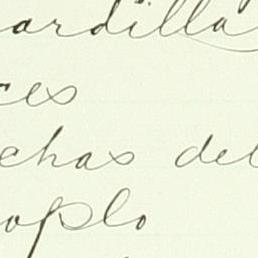 ardilla
ces
chas del
oplo